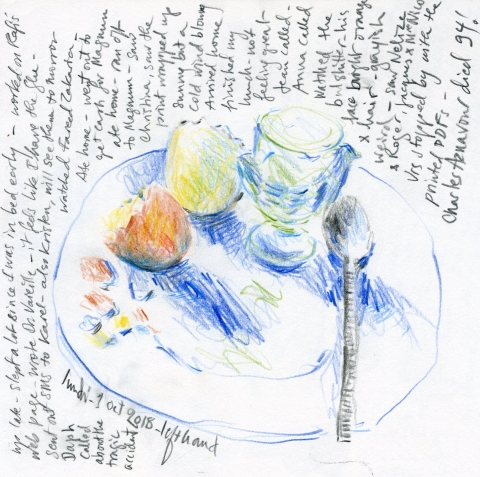 up late - slept a lot since I was in bed early - worked on Raf's
web page - wrote Dr Vareille - it feels like I have the flu -
sent out SMS to Karel - also Kristen, will see them tomorrow
watched Fareed Zakaria
Daph
called
about the
tragic
accident
At home - went out to
get cash for Magnum
ate home - ran off
to Magnum - saw
Christina, saw the
print wrapped up
sunny but a
cold wind blowing
Arrived home
finished my
lunch - not
feeling great
Jean called -
Anna called
watched the
bullshitter - his
face bright orange
x hair - grayish
weird - saw Nelsie
& Roger, Jacques x Nico
Vis stopped by with the
printed PDFs -
Charles Aznavour died 94!
lundi - 1 Oct 2018 - left hand